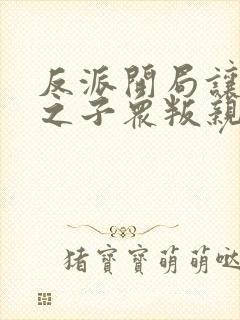 反派開局讓
之子眾叛親
猪寶寶萌萌噠